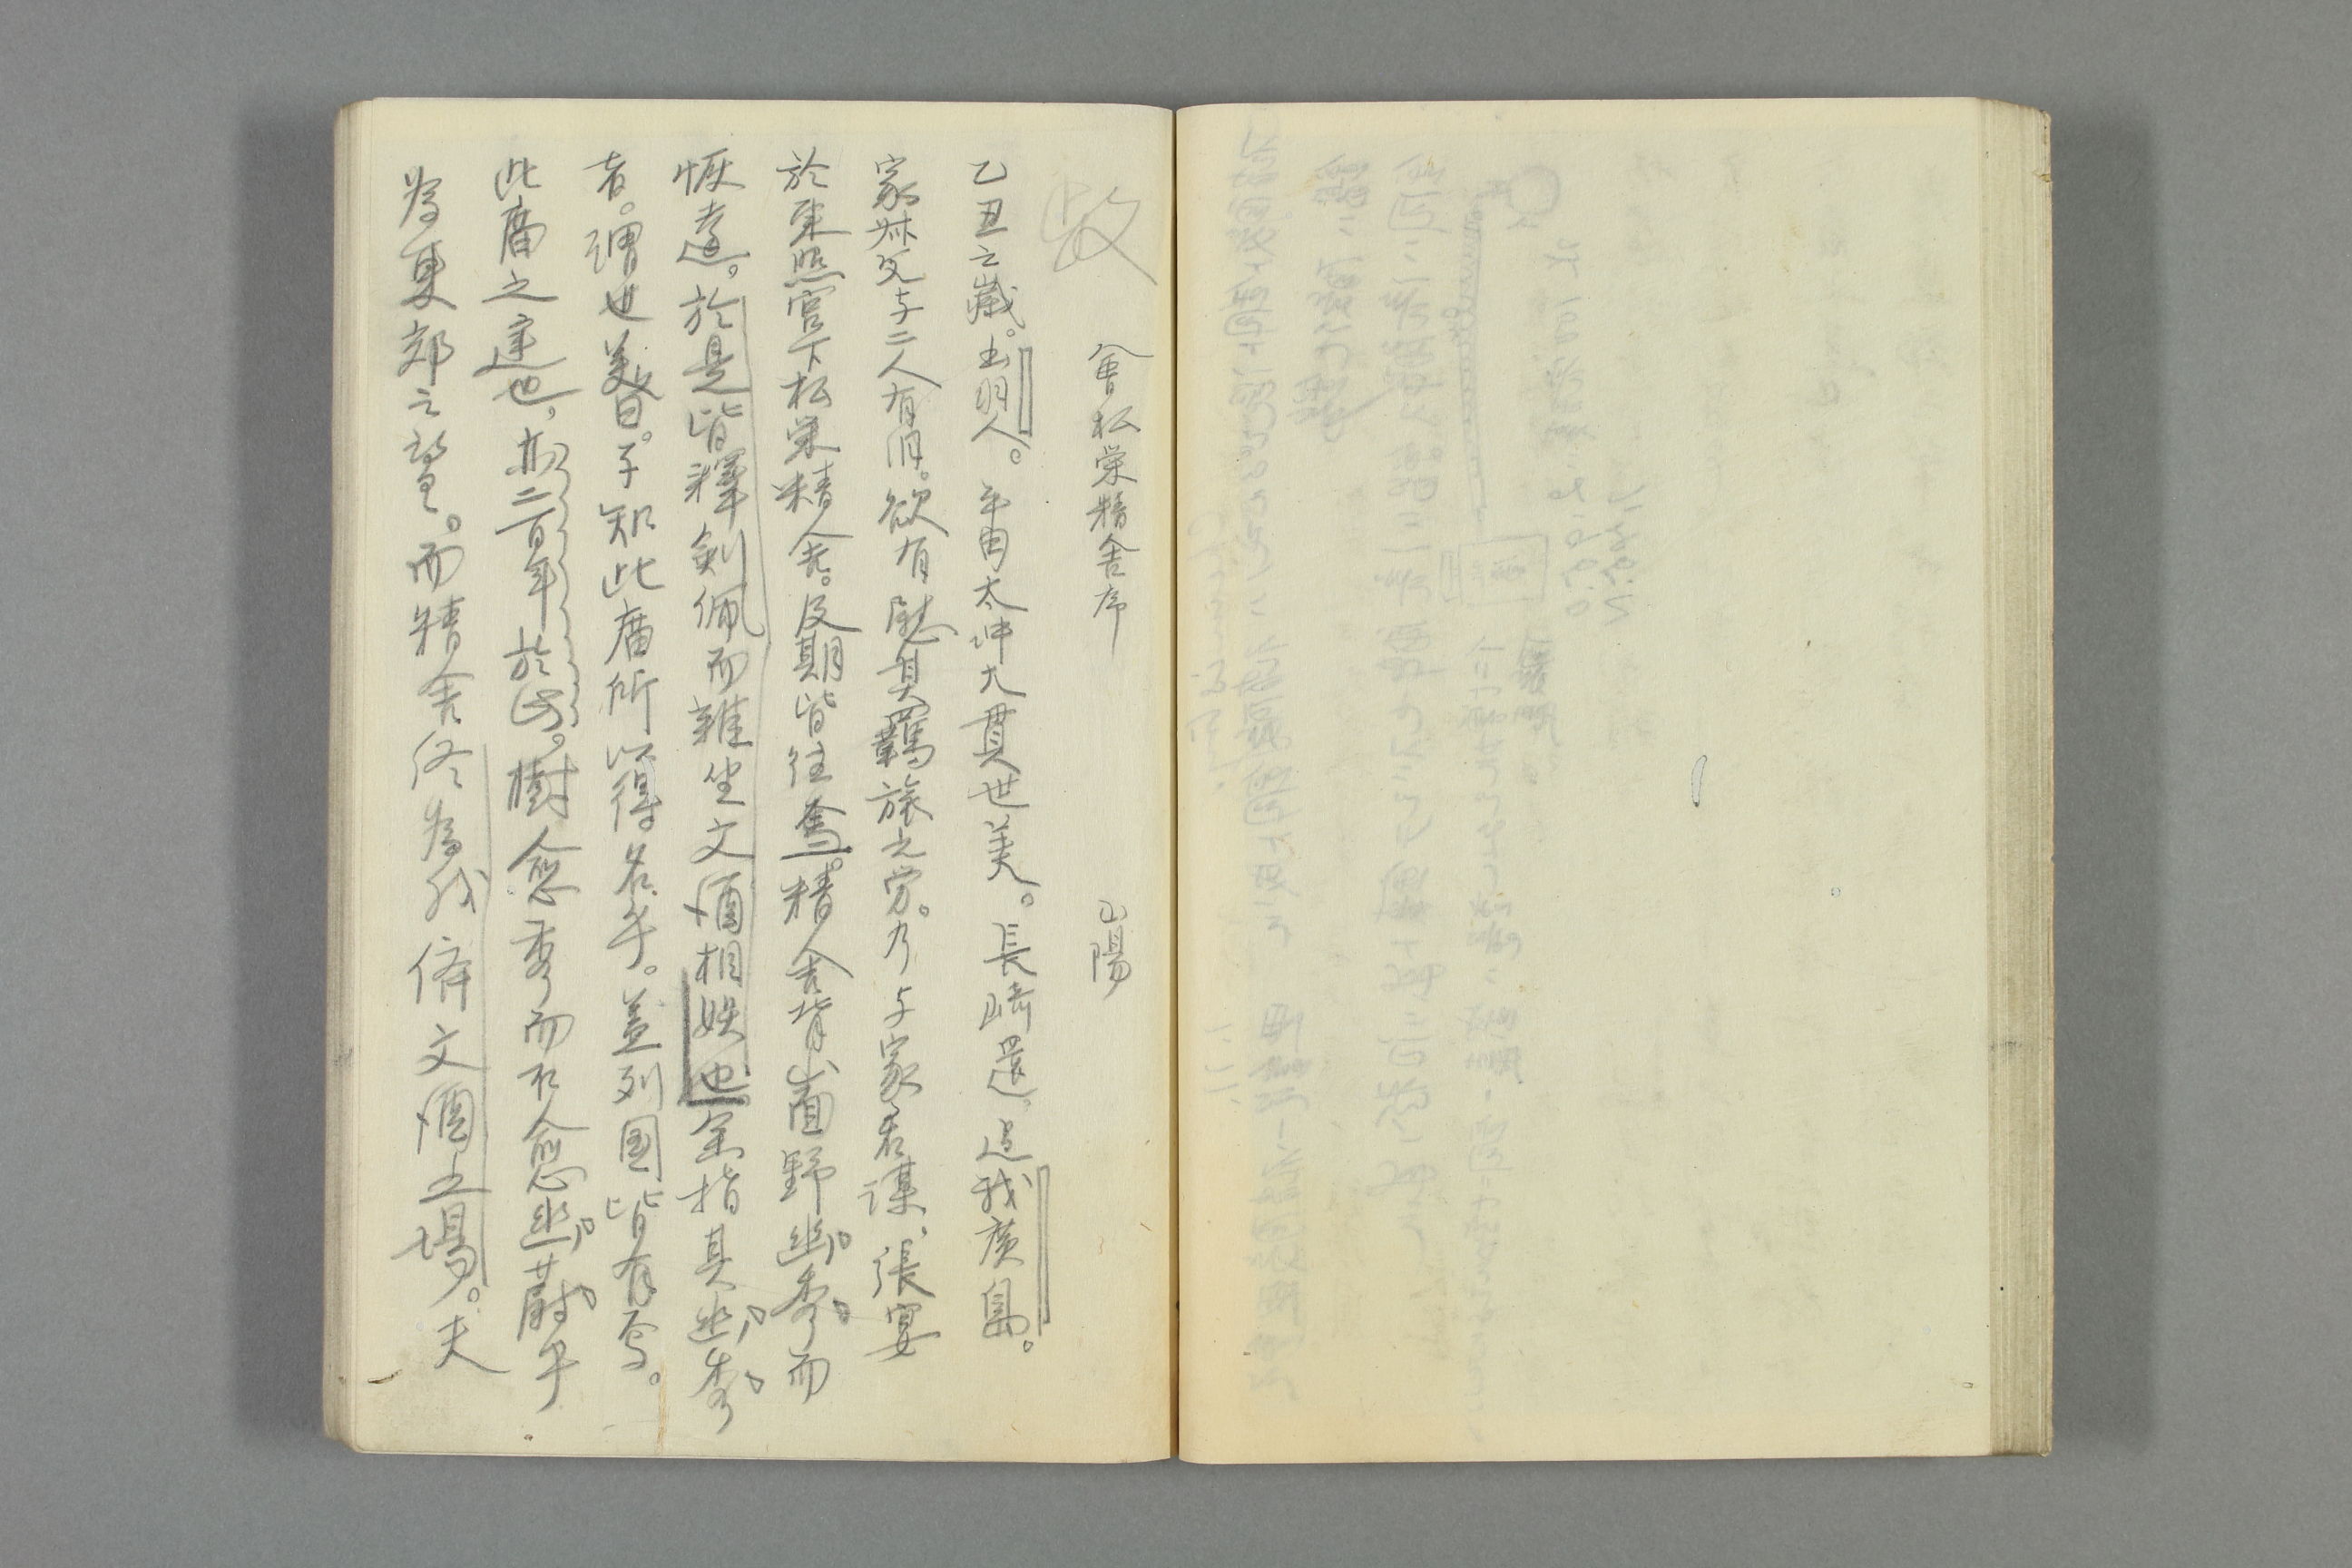 會松栄精舎序　山陽
乙丑之歳。出羽人。平由太冲大貫世美。長崎還。過我廣島。
家叔兄与二人有旧。欲有慰其羈旅之労。乃与家君謀、張宴
於東照宮下松栄精舎。及期皆往奎。精舎背山面野幽秀。而
恢達。於是皆釋剣佩而雑坐文酒相娯也。余指其幽秀
者。謂世美曰。子知此廟所以得名乎。蓋列国皆有焉。
此廟之建也、亦二百年於此。樹愈秀而不愈幽蔚乎
為東郊之望。而精舎終為我儕文酒之場。夫